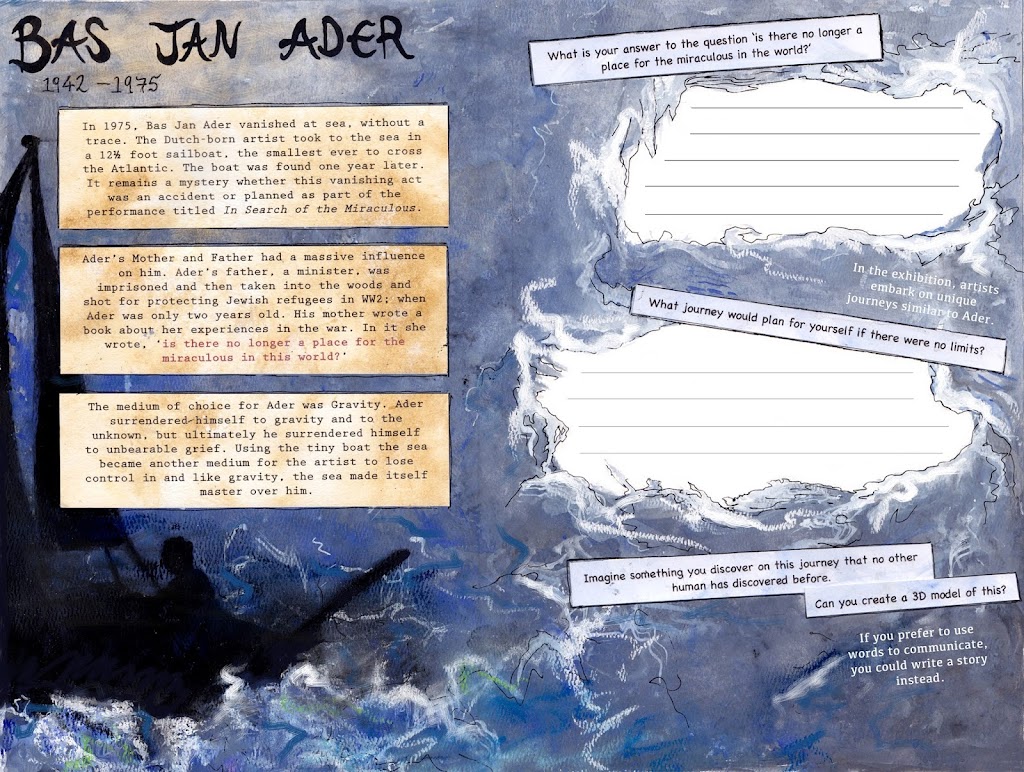 BAS JAN ADER
1942 – 1975
In 1975, Bas Jan Ader vanished at sea, without a
trace. The Dutch-born artist took to the sea in
a 12½ foot sailboat, the smallest ever to cross
the Atlantic. The boat was found one year later.
It remains a mystery whether this vanishing act
was an accident or planned as part of the
performance titled In Search of the Miraculous.
Ader's Mother and Father had a massive influence
on him. Ader's father, a minister, was
imprisoned and then taken into the woods and
shot for protecting Jewish refugees in WW2; when
Ader was only two years old. His mother wrote a
book about her experiences in the war. In it she
wrote, 'is there no longer a place for the
miraculous in this world?'
The medium of choice for Ader was Gravity. Ader
surrendered himself to gravity and to the
unknown, but ultimately he surrendered himself
to unbearable grief. Using the tiny boat the sea
became another medium for the artist to lose
control in and like gravity, the sea made itself
master over him.
What is your answer to the question 'is there no longer a
place for the miraculous in the world?'
In the exhibition, artists
embark on unique
journeys similar to Ader.
What journey would plan for yourself if there were no limits?
Imagine something you discover on this journey that no other
human has discovered before.
Can you create a 3D model of this?
If you prefer to use
words to communicate,
you could write a story
instead.